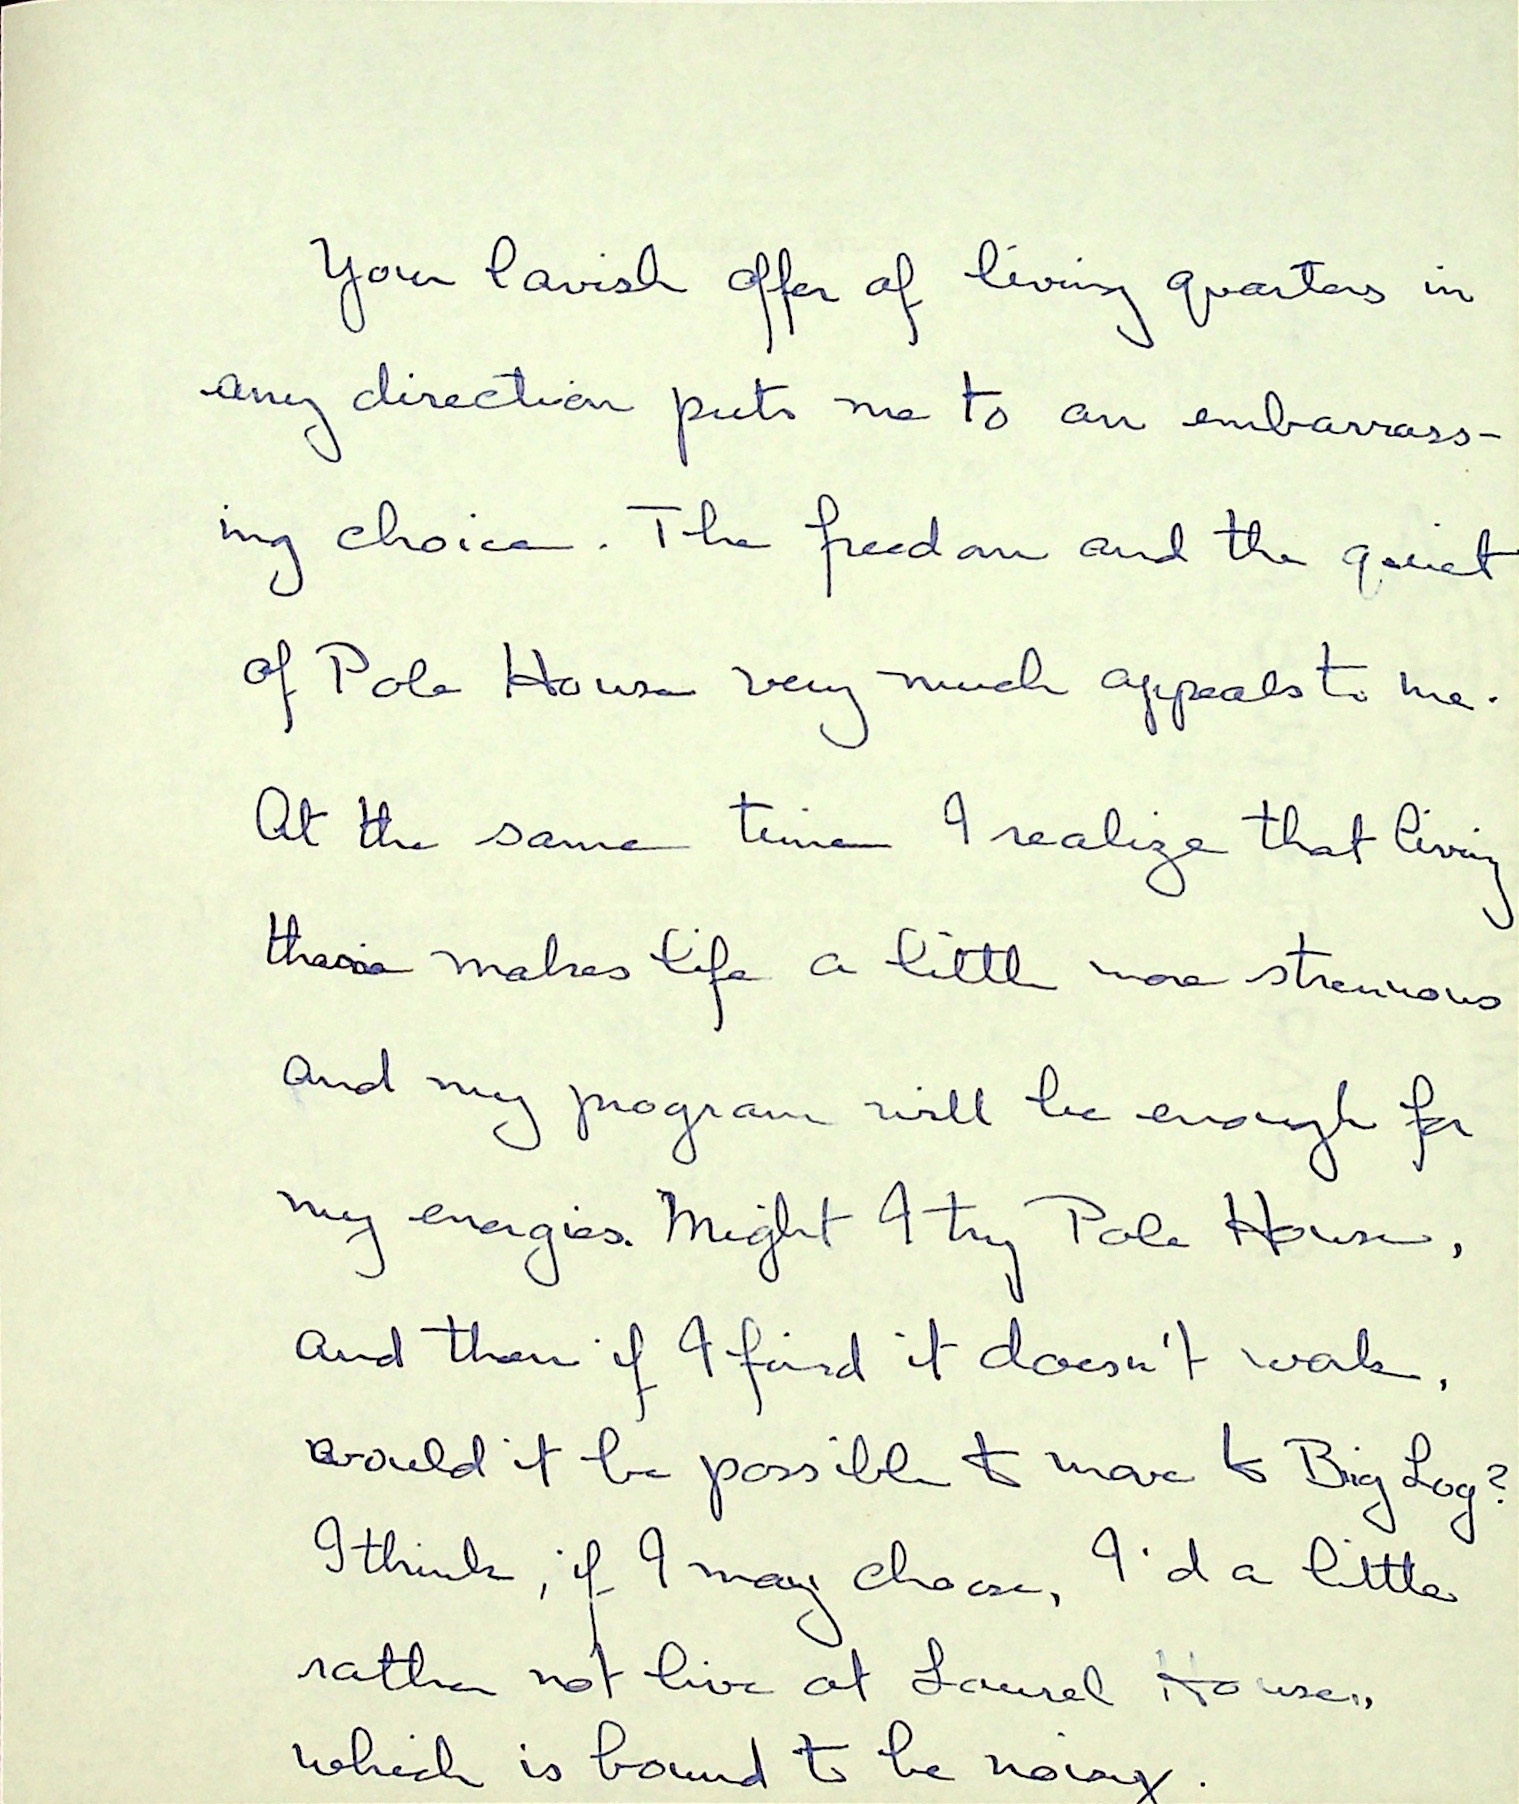 Your lavish offer of living quarters in
any direction puts me to an embarrass-
ing choice. The freedom and the quiet
of Pole House very much appeals to me.
At the same time I realize that living
there makes life a little more strenuous
and my program will be enough for
my energies. Might I try Pole House,
and then if I find it doesn't work,
would it be possible to move to Big Log?
I think, if I may choose, I'd a little
rather not live at Laurel House,
which is bound to be noisy.